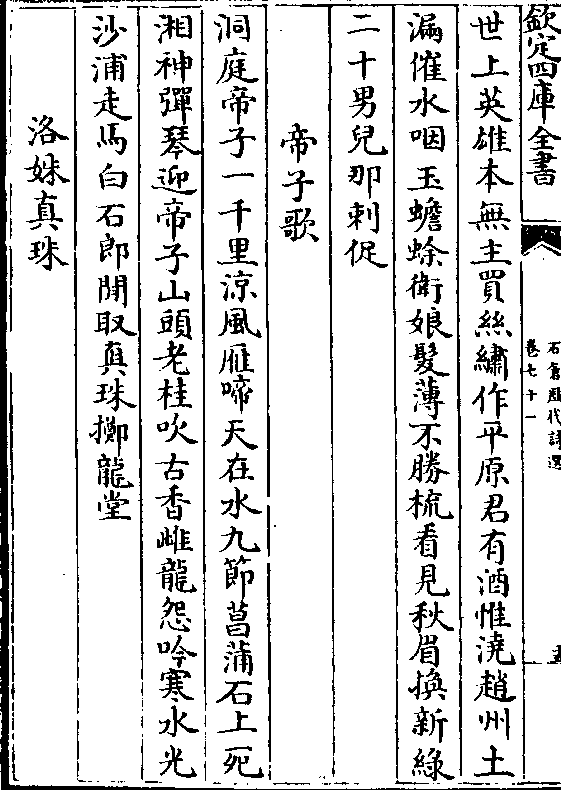 欽定四庫全書
石倉歷代詩選
卷七十一
世上英雄本無主買絲繡作平原君有酒惟澆趙州土
漏催水咽玉蟾蜍衛娘髮薄不勝梳看見秋眉換新綠
二十男兒那刺促
帝子歌
洞庭帝子一千里涼風雁啼天在水九節菖蒲石上死
湘神彈琴迎帝子山頭老桂吹古香雌龍怨吟寒水光
沙浦走馬白石郎閒取真珠擲龍堂
洛姝真珠